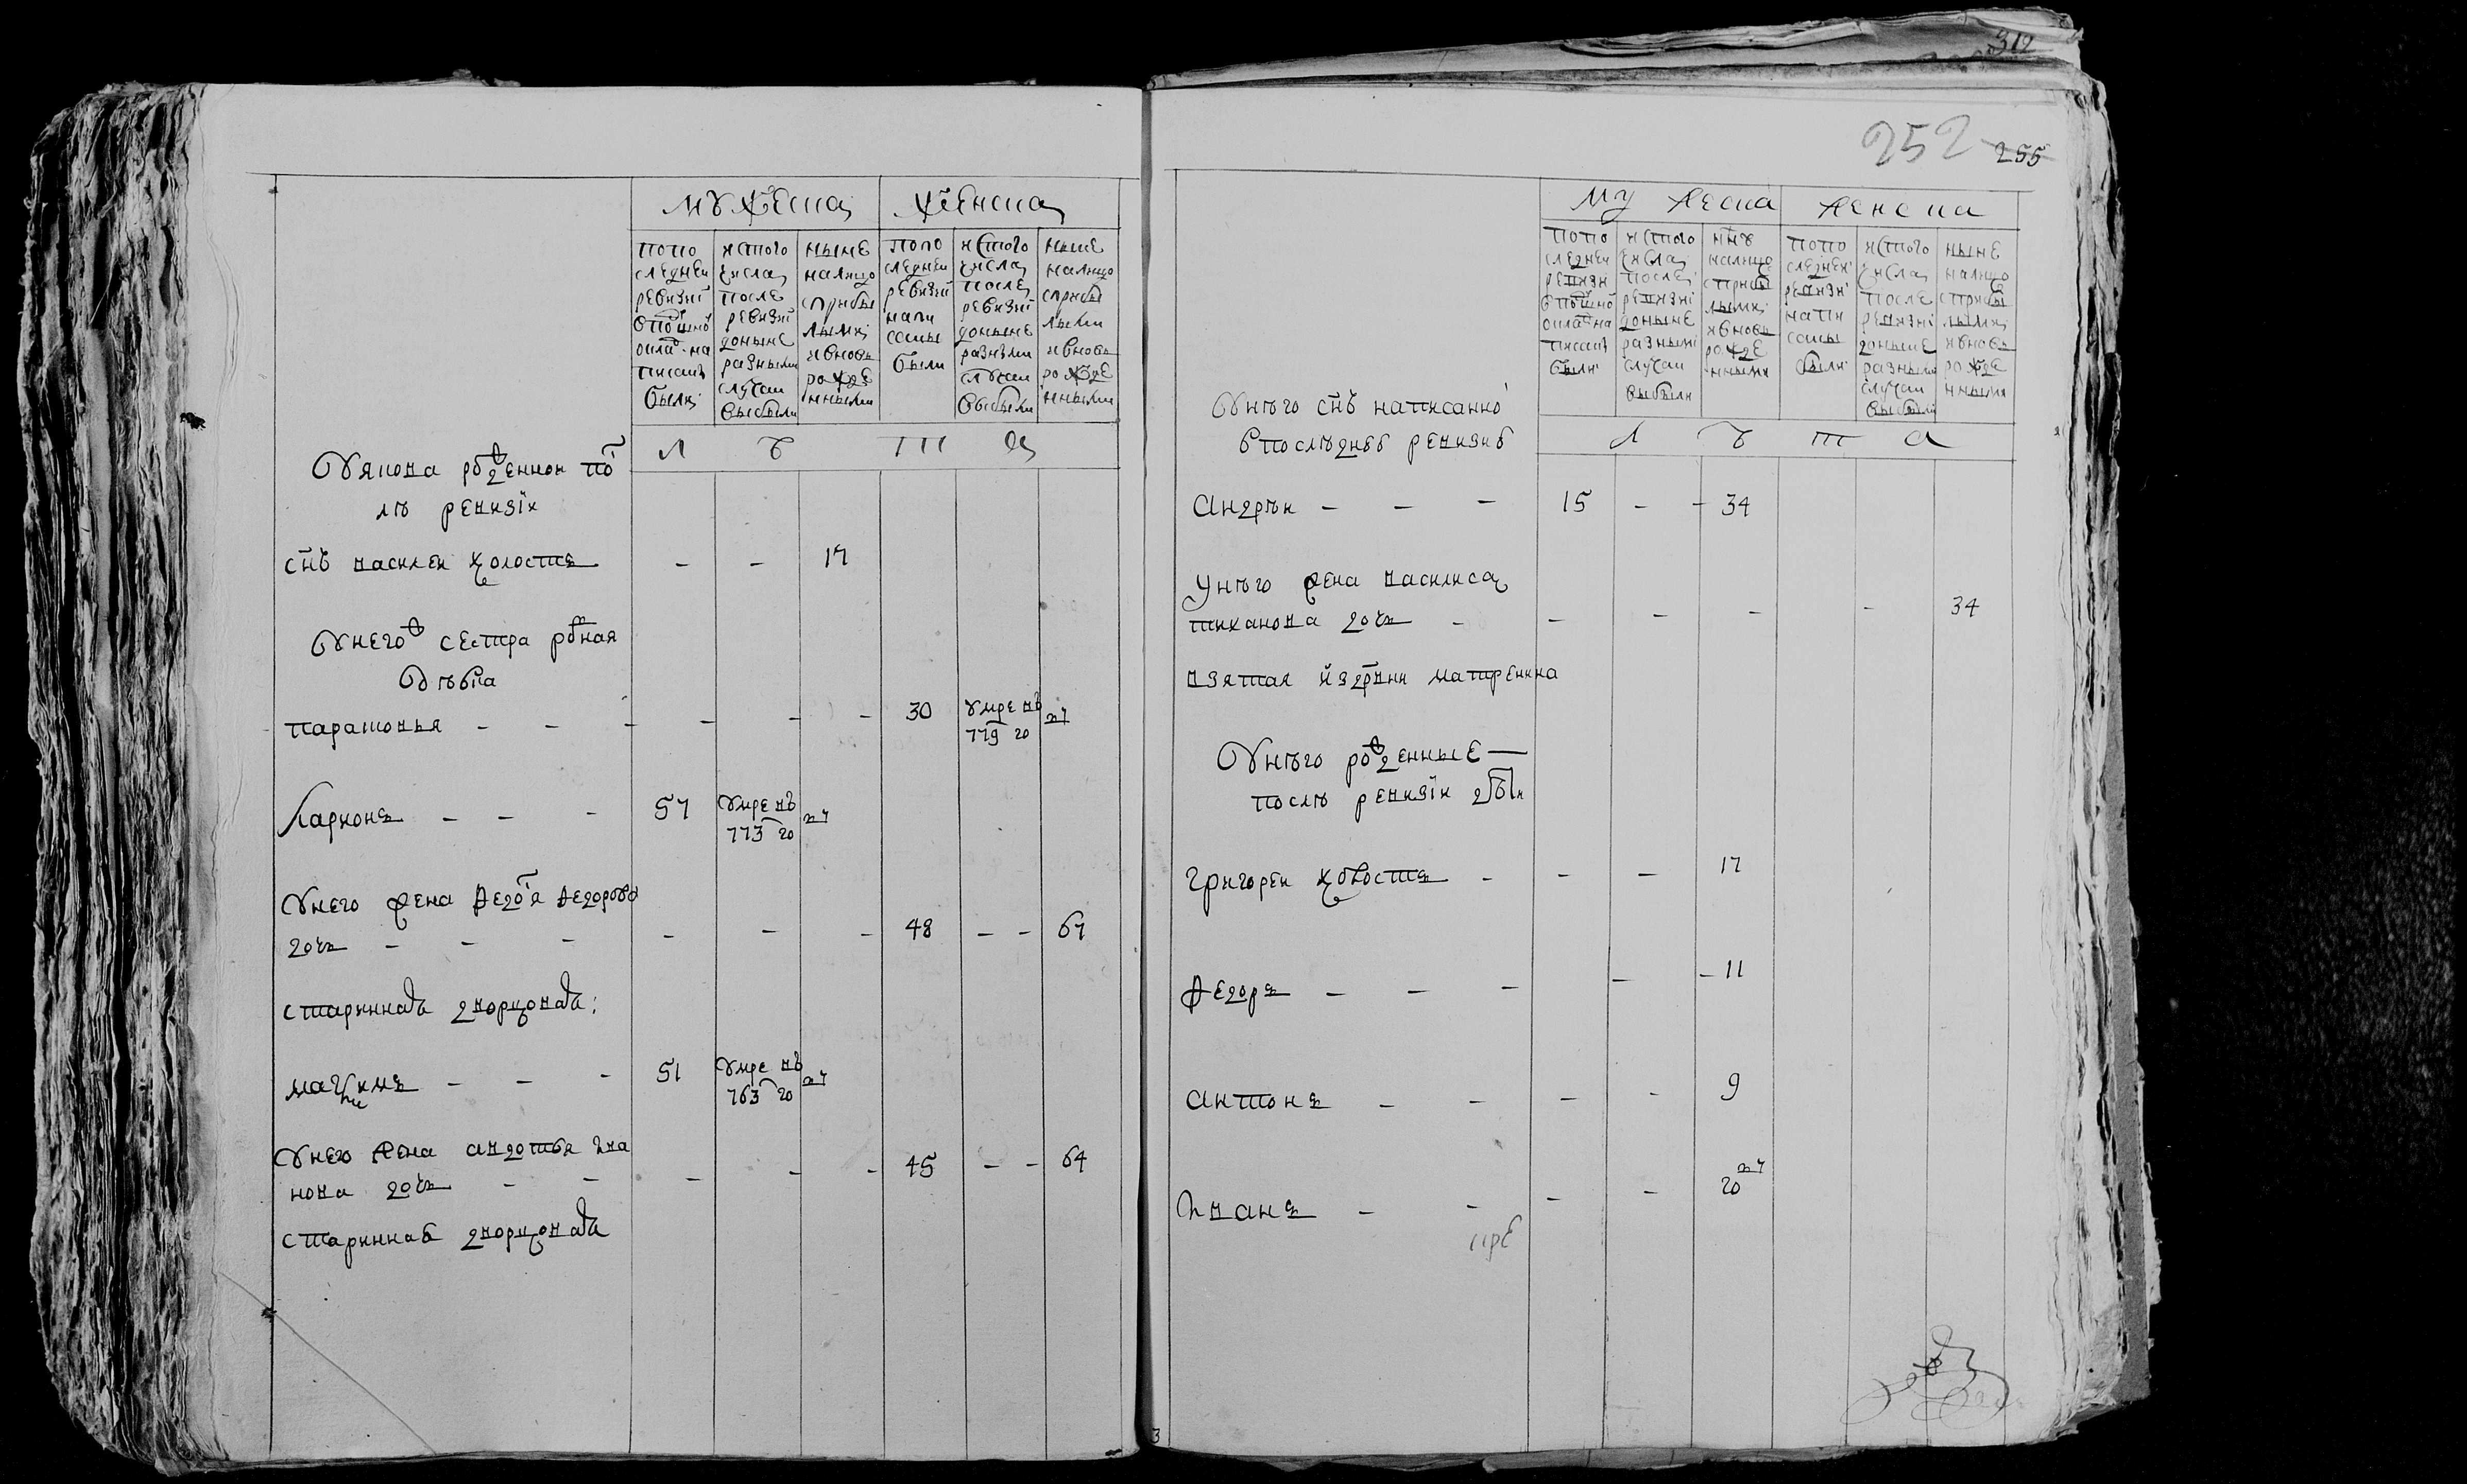 мужеска
женска
попо
следнеи
ревизиї
вподушно
окладъ на
писаны
были
истого
числа
после
ревизиї
доныне
разными
случаи
выбыли
ныне
налицо
сприбы
лыми
ивновь
рожде
нными
попо
следнеи
ревизиї
напи
саны
были
истого
числа
после
ревизиї
доныне
разными
случаи
выбыли
ныне
налицо
сприбы
лыми
ивновь
рожде
нными
л ѣ т а
Уякова рожденнои по
лѣ ревизїи
снъ василеи холостъ - - 17
Унего ж сестра родная
дѣвка
парасковья - - - - - - 30 умре въ 779 го
Ларионъ - - - 57 умре въ 773 го
Унего жена федося федорова
дочь - - - - - - 48 - - 67
стариннаѧ дворцоваѧ
максимъ - - - 51 умре въ 763 го
Унего жена авдотья ива
нова дочь - - - - - 45 - - 64
стариннаѧ дворцоваѧ
312
252
255
му жеска
женска
попо
следнеи
ревизиї
вподушно
окладъ на
писанъ
были
истого
числа
после
ревизиї
доныне
разными
случаи
выбыли
ннѣ
налицо
сприбы
лыми
ивновь
рожде
нными
попо
следнеи
ревизиї
напи
саны
были
истого
числа
после
ревизиї
доныне
разными
случаи
выбыли
ныне
налицо
сприбы
лыми
ивновь
рожде
нными
л ѣ т а
Унѣго снъ написанно
впослѣднеѣ ревизиѣ
Андрѣи - - - 15 - - 34
Унѣго жена василиса
тиханова дочь - - - - - 34
взятая издрвни матренина
Унѣго рожденные
послѣ ревизїи дѣти
Григореи холостъ - - - 17
федоръ - - - - - 11
антонъ - - - - 9
Иванъ - - - - 20